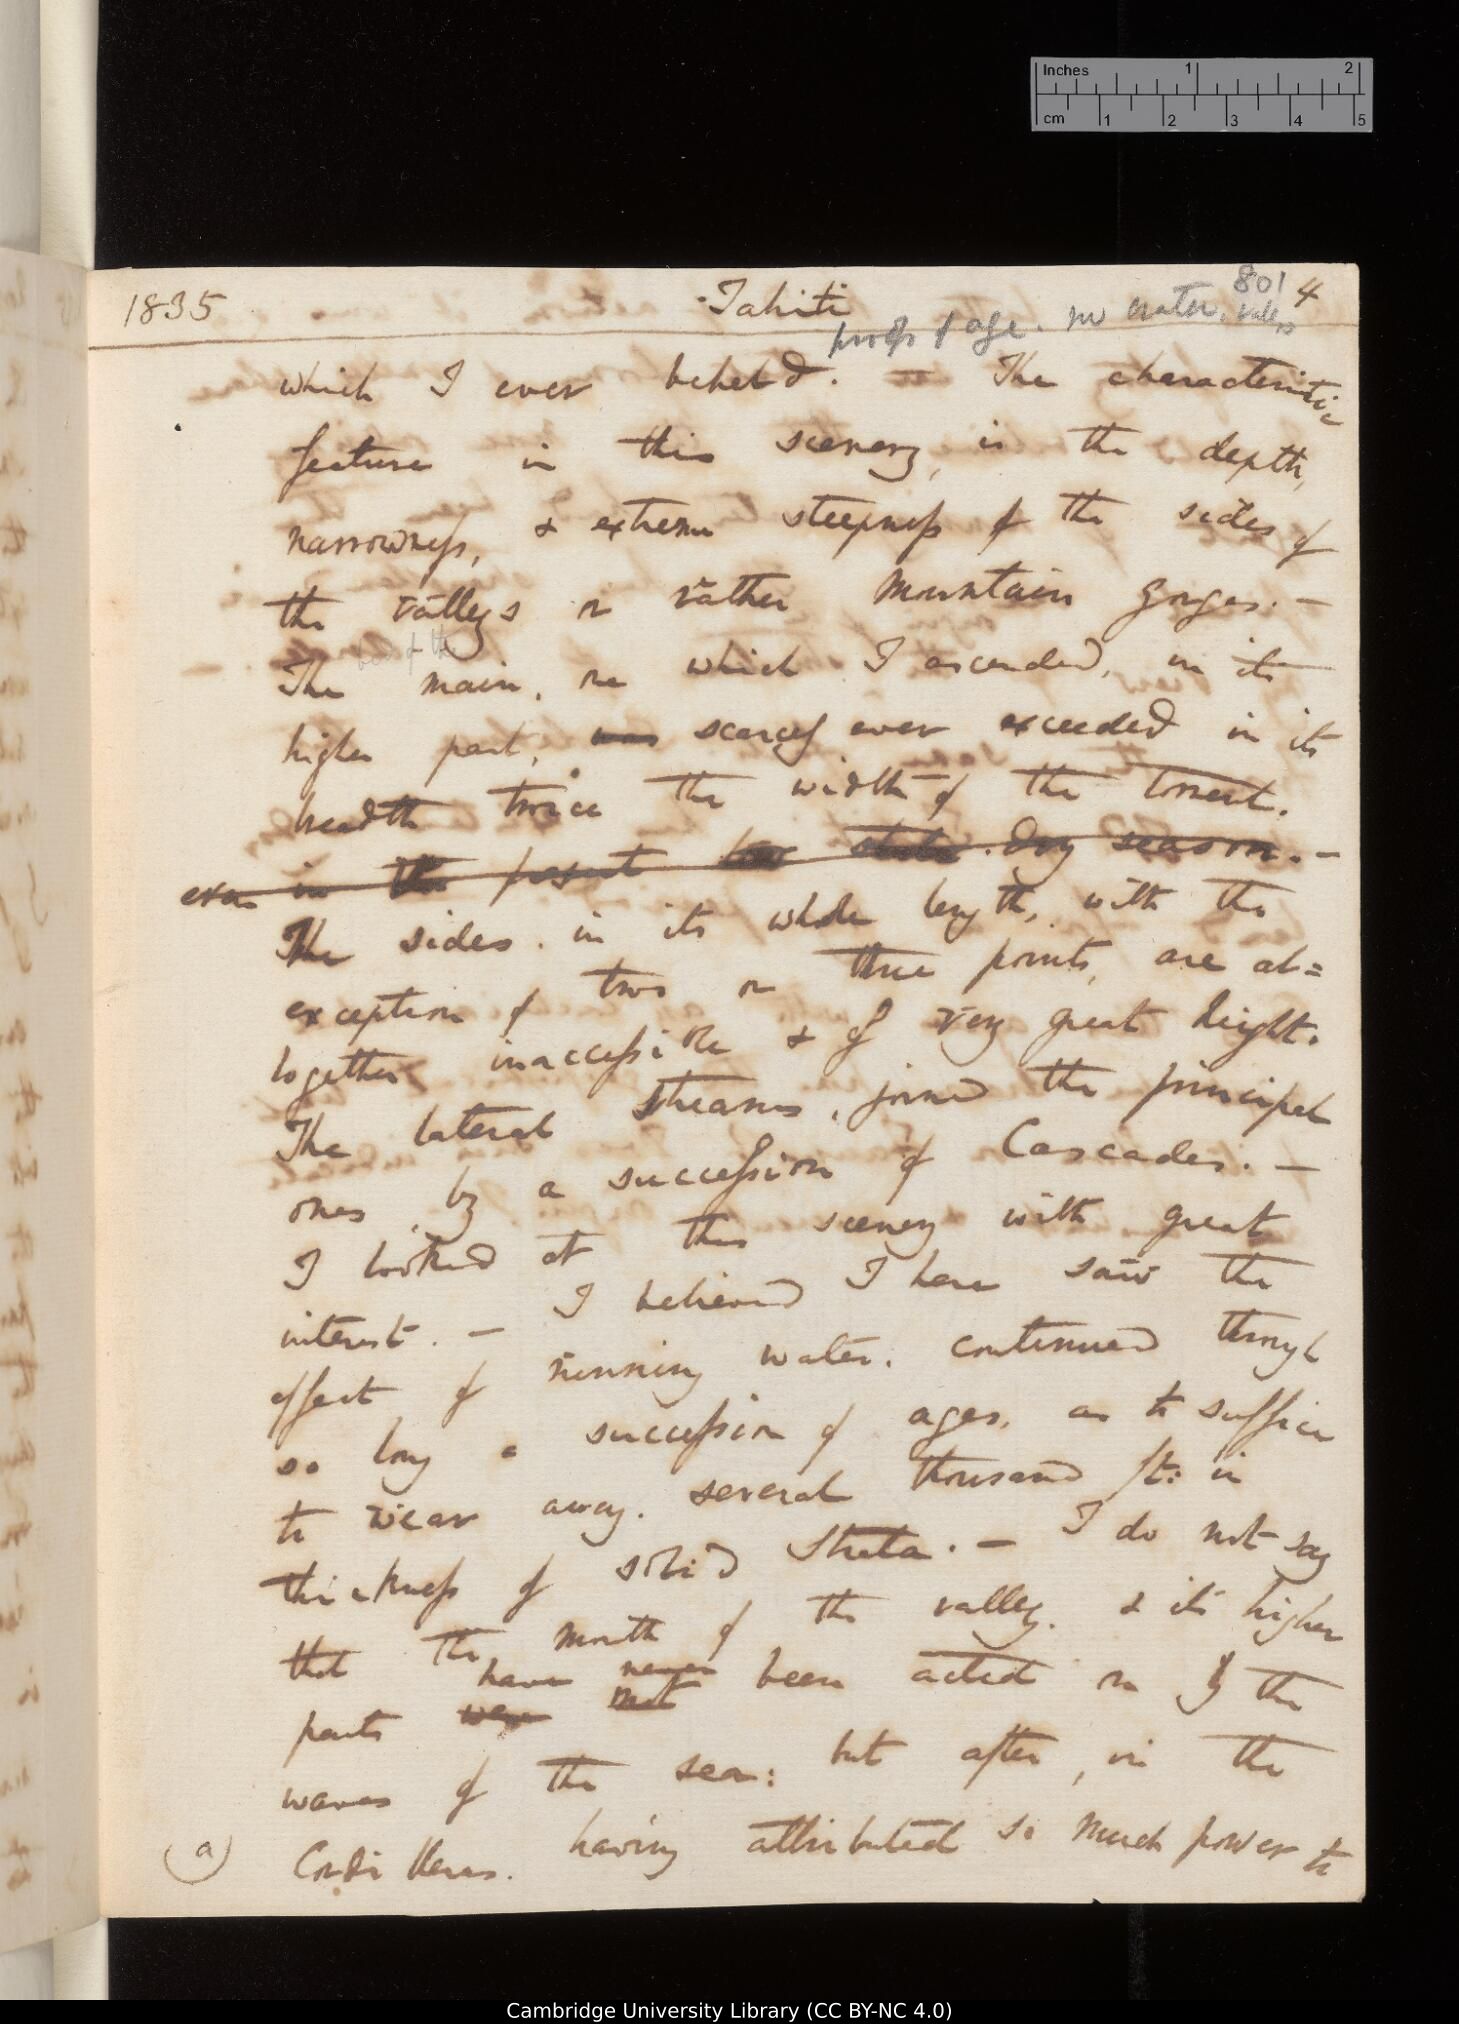 Inches 1 2
cm 1 2 3 4 5
801
1835 Tahiti 4
proofs of age. no crater. valleys
which I ever beheld. — The characteristic
feature in this scenery, is the depth,
narrowness, & extreme steepness of the sides of
the valleys or rather mountain gorges. —
bed of the
The main, one which I ascended, in its
higher part, was scarcely ever exceeded in its
breadth twice the width of the torrent.
even in the present dry season. —
The sides. in its whole length, with the
exception of two or three points, are al=
together inaccessible & of very great height.
The lateral streams, joined the principal
ones, by a succession of Cascades. —
I looked at this scenery with great
interest. — I believed I here saw the
effect of running water. continued through
so long a succession of ages, as to suffice
to wear away. several thousand ft: in
thickness of solid strata. — I do not say
that the mouth of the valley. & its higher
have never
parts were not been acted on by the
waves of the sea: but after, in the
(a) Cordilleras. having attributed so much power to
Cambridge University Library (CC BY-NC 4.0)